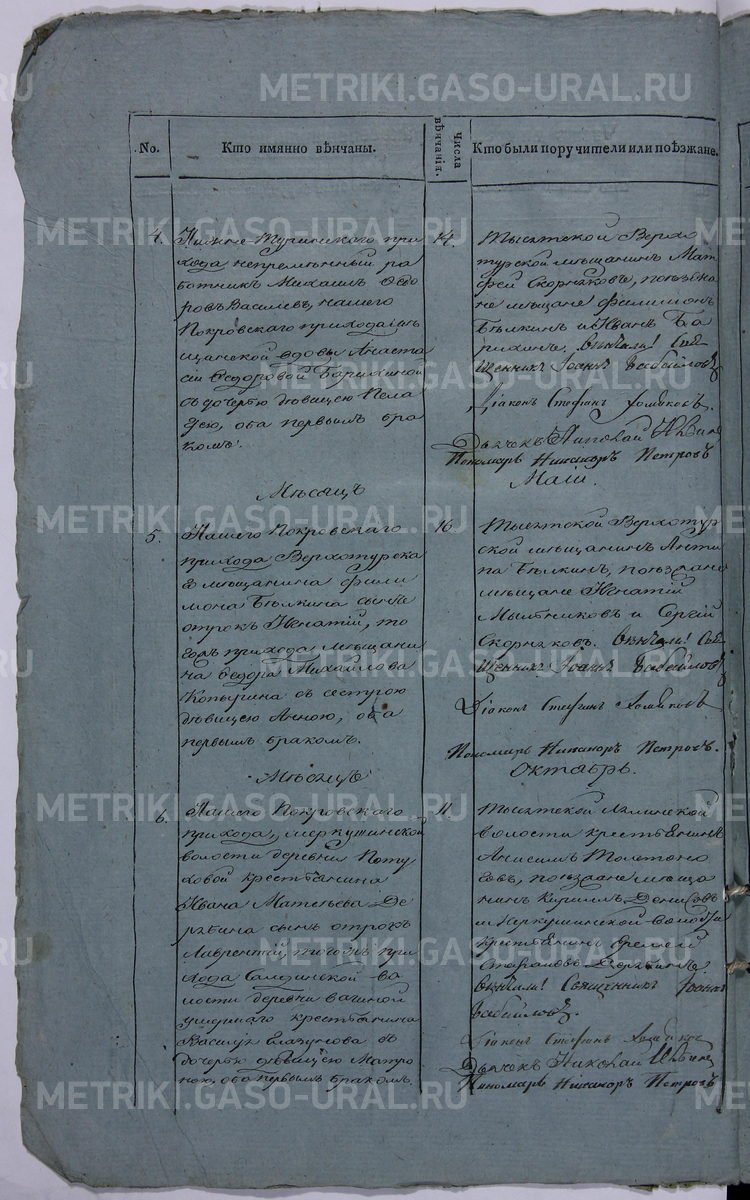 METRIKI.GASO-URAL.RU
No.
Кто имянно вѣнчаны.
Числа вѣнчанія.
Кто были поручители или поѣзжане.
4.
Нижне-Туринскаго при
хода непремѣнный ра
ботникъ Михаилъ Ѳедо
ровъ Василевъ, нашего
Покровскаго прихода мѣ
щанской вдовы Анаста
сіи Ѳедоровой
съ дочерью дѣвицею Пела
гею, оба первымъ бра
комъ.
14
Тысятской Верхо
турской мѣщанинъ Мат
фей Скорняковъ, поѣзжа
не мѣщане Филимонъ
Бѣлкинъ и Иванъ Ба
рихинъ. Вѣнчали! Свя
щенникъ Іоаннъ
Діаконъ Стефанъ Хомяковъ.
Дьячекъ Николай
Пономарь Никаноръ Петровъ
Мѣсяцъ
Маій.
5.
Нашего Покровскаго
прихода Верхотурска
го мѣщанина Фили
мона Бѣлкина сынъ
отрокъ Игнатій, то
гожъ прихода мѣщани
на Ѳедора Михайлова
Копыгина съ сестрою
дѣвицею Анною, оба
первымъ бракомъ.
16
Тысятской Верхотур
ской мѣщанинъ Анти
па Бѣлкинъ, поѣзжане
мѣщане Игнатій
Мыльниковъ и Сергій
Скорняковъ. Вѣнчали! Свя
щенникъ Іоаннъ
Діаконъ Стефанъ Хомяковъ
Пономарь Никаноръ Петровъ.
Мѣсяцъ
Октябрь.
6.
Нашего Покровскаго
прихода, Меркушинской
волости деревни Поту
ховой крестьянина
Ивана Матвѣева Де
рябина сынъ отрокъ
Лаврентій, тогожъ при
хода Салдинской во
лости деревни Вагиной
умершаго крестьянина
Василья Глазунова съ
дочерью дѣвицею Матро
ною, оба первымъ бракомъ.
11
Тысятской Лялинской
волости крестьянинъ
Анисимъ Толстоно
говъ, поѣзжане мѣща
нинъ Кирилъ Денисовъ
и Меркушинской волости
крестьянинъ Еремей
Дерябинъ.
Вѣнчали! Священникъ Іоаннъ
Діаконъ Стефанъ Хомяковъ
Дьячекъ Николай
Пономарь Никаноръ Петровъ